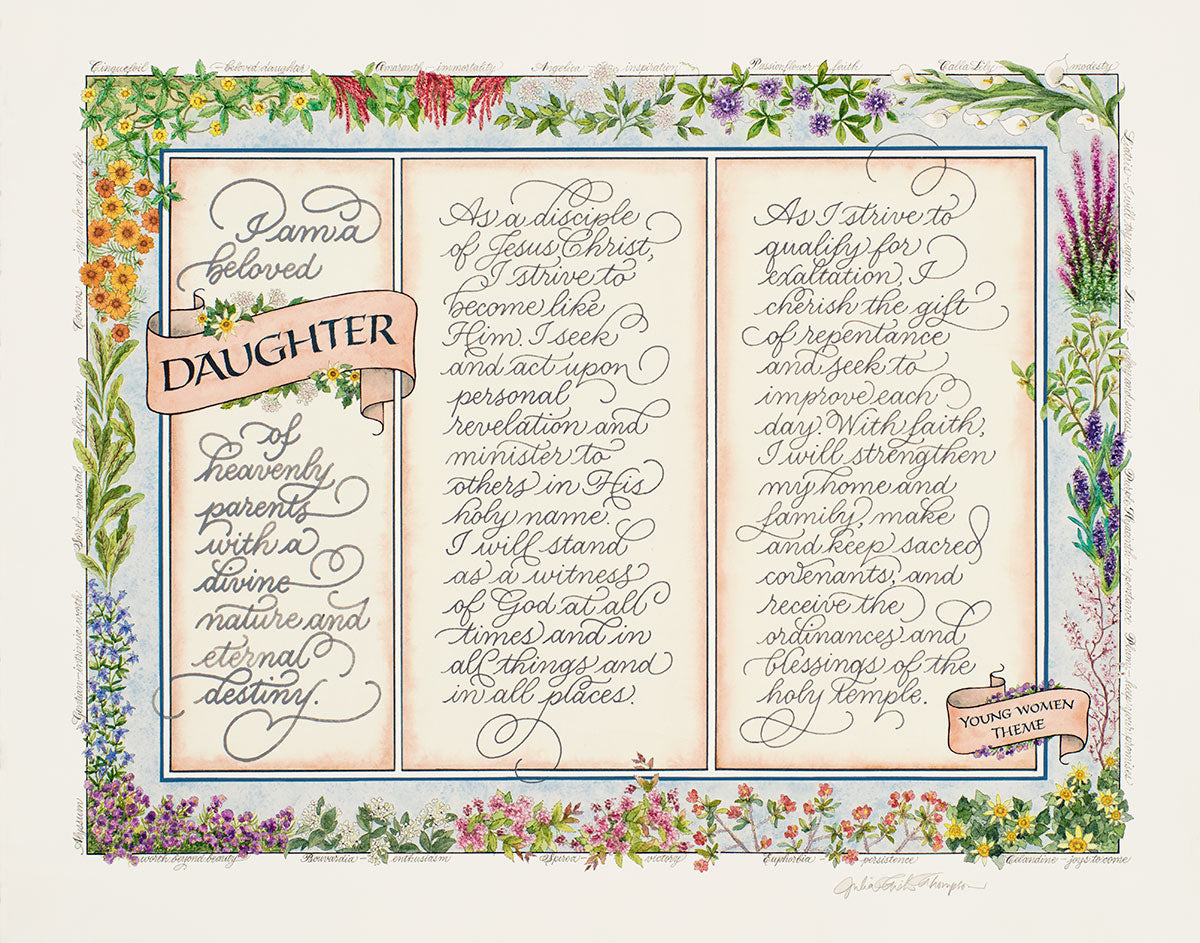 Cinquefoil – beloved daughter
Amaranth – immortality
Angelica – inspiration
Passionflower – faith
Calla Lily – modesty
I am a
beloved
DAUGHTER
of
heavenly
parents
with a
divine
nature and
eternal
destiny.
As a disciple
of Jesus Christ,
I strive to
become like
Him. I seek
and act upon
personal
revelation and
minister to
others in His
holy name.
I will stand
as a witness
of God at all
times and in
all things and
in all places.
As I strive to
qualify for
exaltation, I
cherish the gift
of repentance
and seek to
improve each
day. With faith,
I will strengthen
my home and
family, make
and keep sacred
covenants, and
receive the
ordinances and
blessings of the
holy temple.
YOUNG WOMEN
THEME
Cosmos – joy in love and life
Sorrel – parental affection
Gentian – intrinsic worth
Alyssum
worth beyond beauty
Bouvardia – enthusiasm
Spirea – victory
Euphorbia – persistence
Celandine – joys to come
Julia Thompson